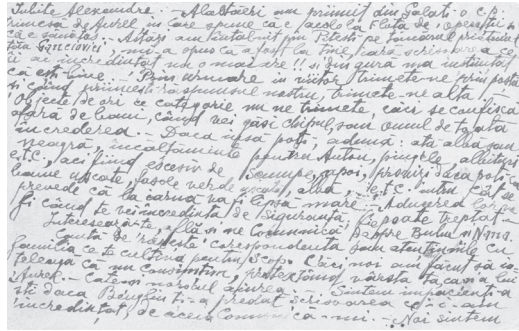 Iubite Alexandre: - Alaltăeri am primit din Galați o c.p.
trimeasă de Aurell, în care spune că e acolo la Cota de operații și
că e sănătos. - Astăzi am întâlnit pe tânărul prietenul
tăta, mi-a spus că a fost la tine, fără scrisoare a ce
ți ai încredințat nu o mai are!! și din gura m'a înștiințat
că ești bine. - Prin urmare în viitor, trimete-ne prin poștă
și când primești răspunsul nostru, trimete-ne alta. -
Obiecte de ori ce categorie nu ne trimete, căci se confiscă
afară de bani, când vei găsi chipul, sau omul de toată
încrederea. - Dacă însă poți, adună: ață albă sau
neagră, încălțăminte pentru Anton, pingele,
etc, aci fiind escesiv de scumpe, apoi, proviziuni dacă poți
uscate, fasole verde uscată, albă, etc. întru cât se
prevede că la iarnă va fi lipsă mare. - Aducerea lor va
fi când te vei încredința de siguranță, se poate treptat -
Interesează-te, află și ne comunică despre
Caută de răspunde corespondenta sau atențiunile cu
familia ce te cultivă pentru scop. Căci noi am făcut să în-
țeleagă că nu consimțim, vârsta ta ca și a lui
Aurel. - norocul aiurea. - Suntem impacienți a
ști dacă ți-a predat scrisoarea ce i-am
încredințat, de aceea comunică-mi. - Noi suntem